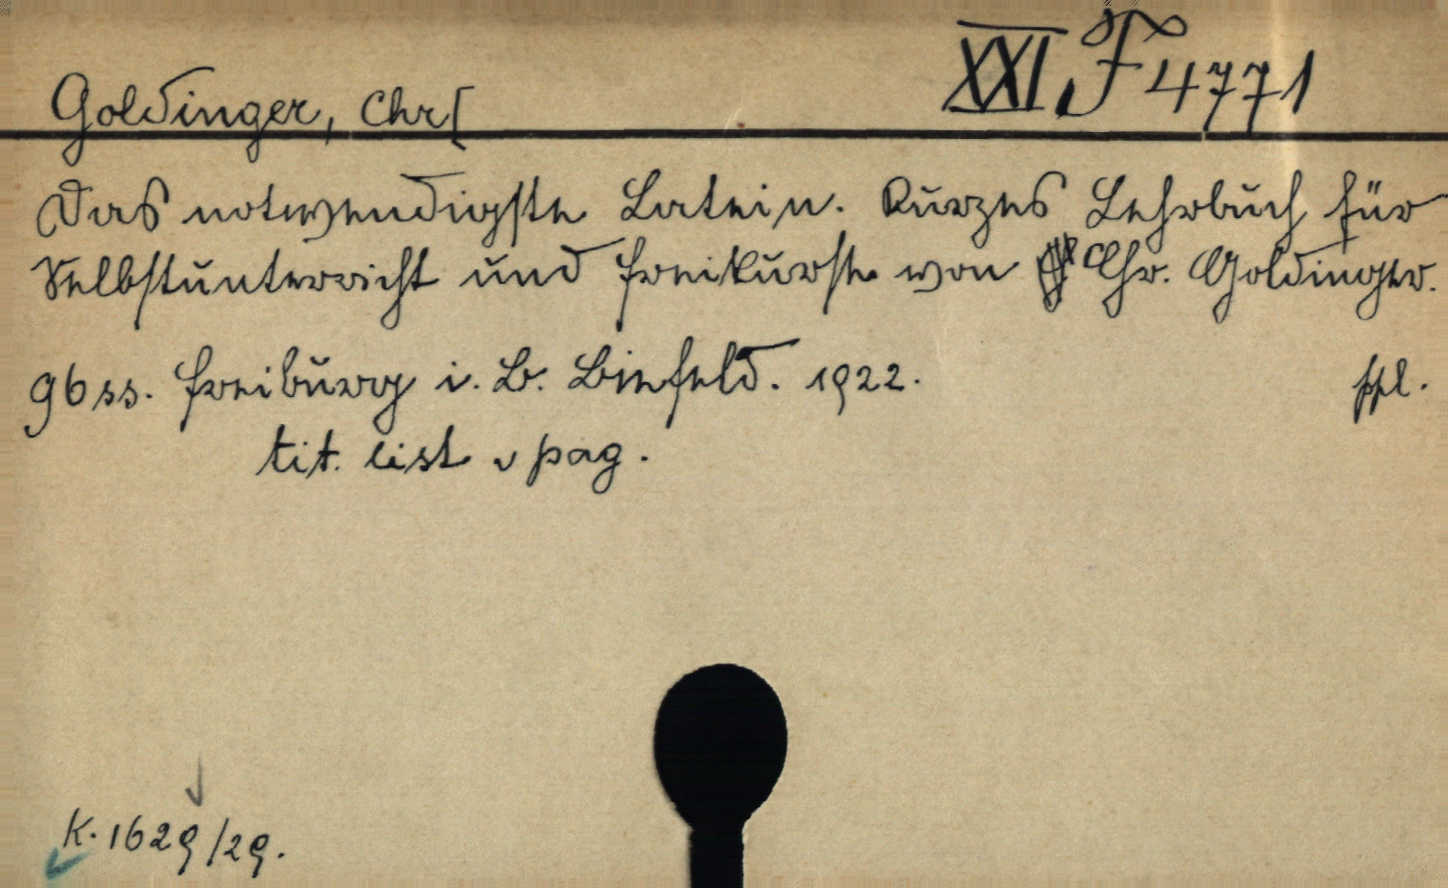 XXI F 4771
Goldinger, Chr[
Das notwendigste Latein. Kurzes Lehrbuch für
Selbstunterricht und Freikurse von Chr. Goldinger.
96 ss. Freiburg i. B. Bielefeld. 1922. ppl.
tit. list v pag.
K. 1629/29.